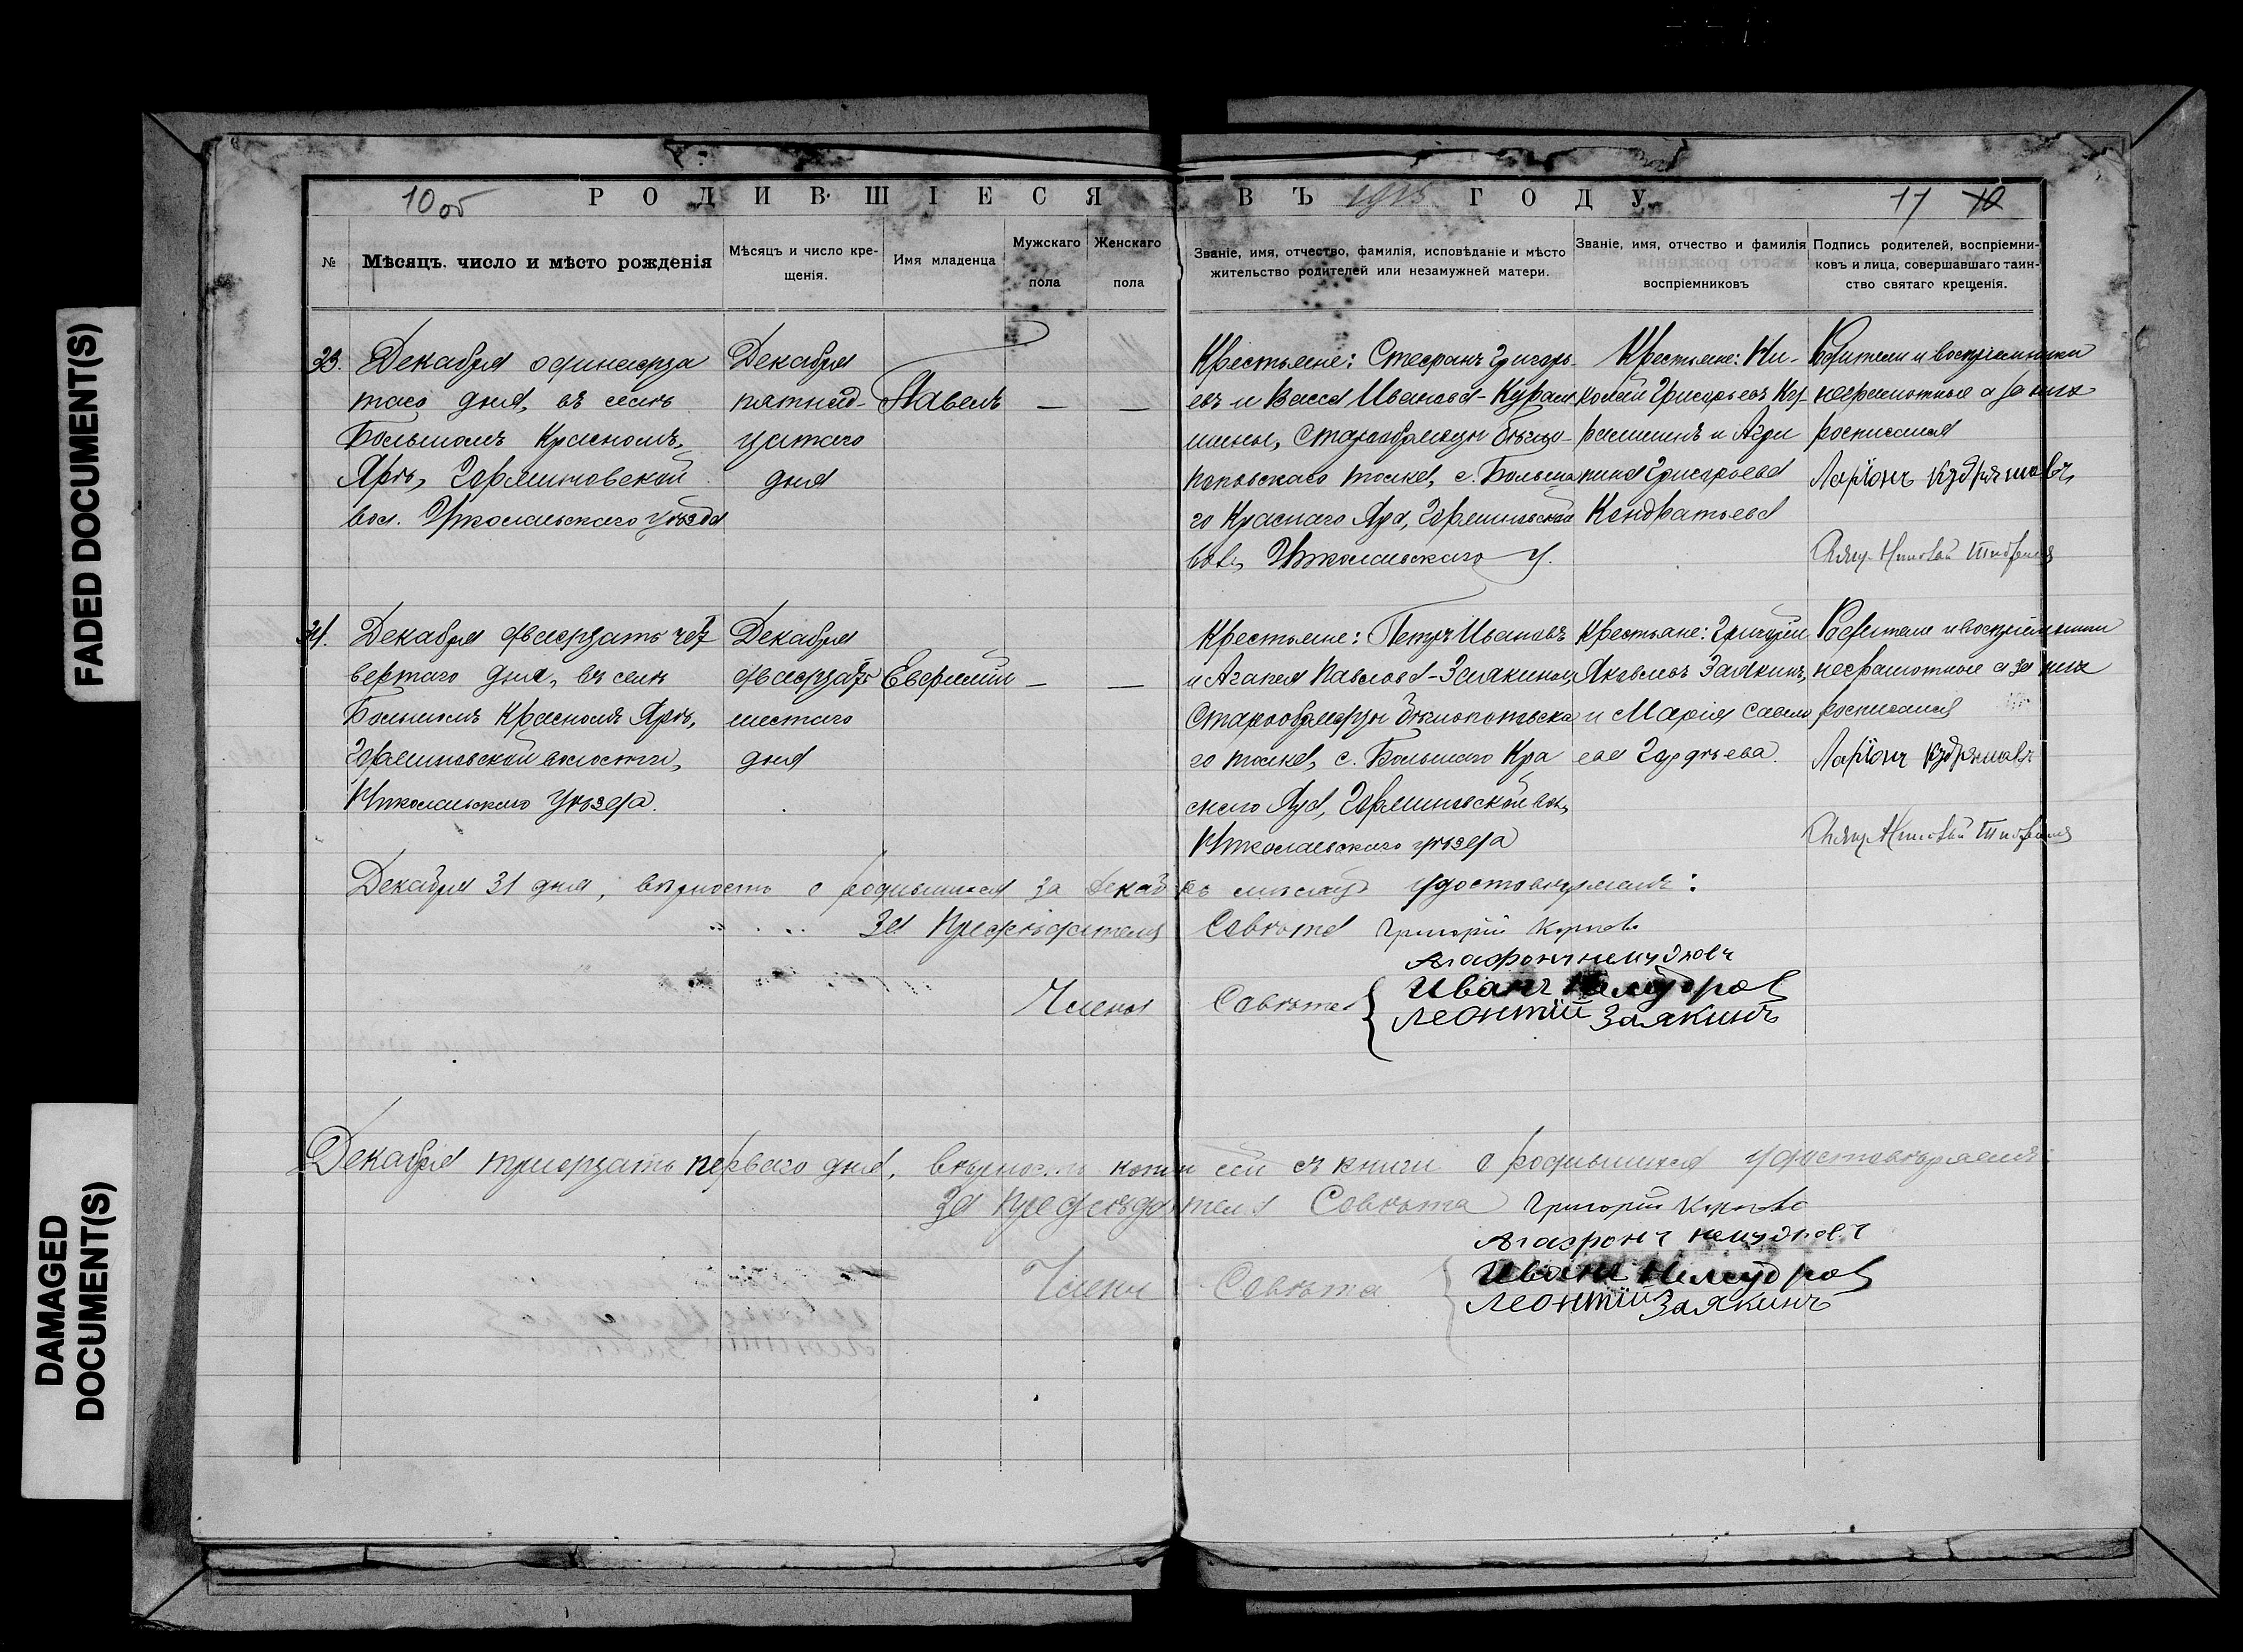 FADED DOCUMENT(S)
DAMAGED DOCUMENT(S)
10 об
РОДИВШІЕСЯ ВЪ 1915 ГОДУ
11 10
№
Мѣсяцъ, число и мѣсто рожденія
Мѣсяцъ и число кре-
щенія.
Имя младенца
Мужскаго
пола
Женскаго
пола
Званіе, имя, отчество, фамилія, исповѣданіе и мѣсто
жительство родителей или незамужней матери.
Званіе, имя, отчество и фамилія
воспріемниковъ
Подпись родителей, воспріемни-
ковъ и лица, совершавшаго таин-
ство святаго крещенія.
33.
Декабря одинадца
таго дня, въ селѣ
Большомъ Красномъ
Ярѣ,
вол. Николаевскаго уѣзда
Декабря
пятнад-
цатаго
дня
Павелъ
— —
Крестьяне: Стефанъ Григорь-
евъ и Васса Иванова
старообрядцы бѣгло-
поповскаго толка, с. Больша
го Краснаго Яра,
вол., Николаевскаго у.
Крестьяне: Ни-
колай Григорьевъ
Григорьева
Кондратьева
Родители и воспріемники
неграмотные а за нихъ
росписался
Ларіонъ Кудряшовъ
34.
Декабря двадцать чет
вертаго дня, въ селѣ
Большомъ Красномъ Ярѣ,
волости,
Николаевскаго уѣзда.
Декабря
двадцать
шестаго
дня
Евфимій
— —
Крестьяне: Петръ Ивановъ
и Агапея Павлова - Заякины,
Старообрядцы бѣглопоповска
го толка, с. Большаго Кра
снаго Яра, вол,
Николаевскаго уѣзда
Крестьяне: Григорій
Яковлевъ Заякинъ,
и Марія Савель
ева Гордѣева.
Родители и воспріемники
неграмотные а за нихъ
росписался
Ларіонъ Кудряшовъ
Декабря 31 дня, вѣрность о родившихся за Декабрь мѣсяцъ удостовѣряемъ:
За Предсѣдателя Совѣта Григорій
Агафонъ Немудровъ
Члены Совѣта Иванъ Немудров
Леонтій Заякинъ
Декабря тридцать перваго дня, вѣрность копіи сей съ книги о родившихся удостовѣряемъ
За Предсѣдателя Совѣта Григорій
Агафонъ Немудровъ
Члены Совѣта Иванъ Немудров
Леонтій Заякинъ